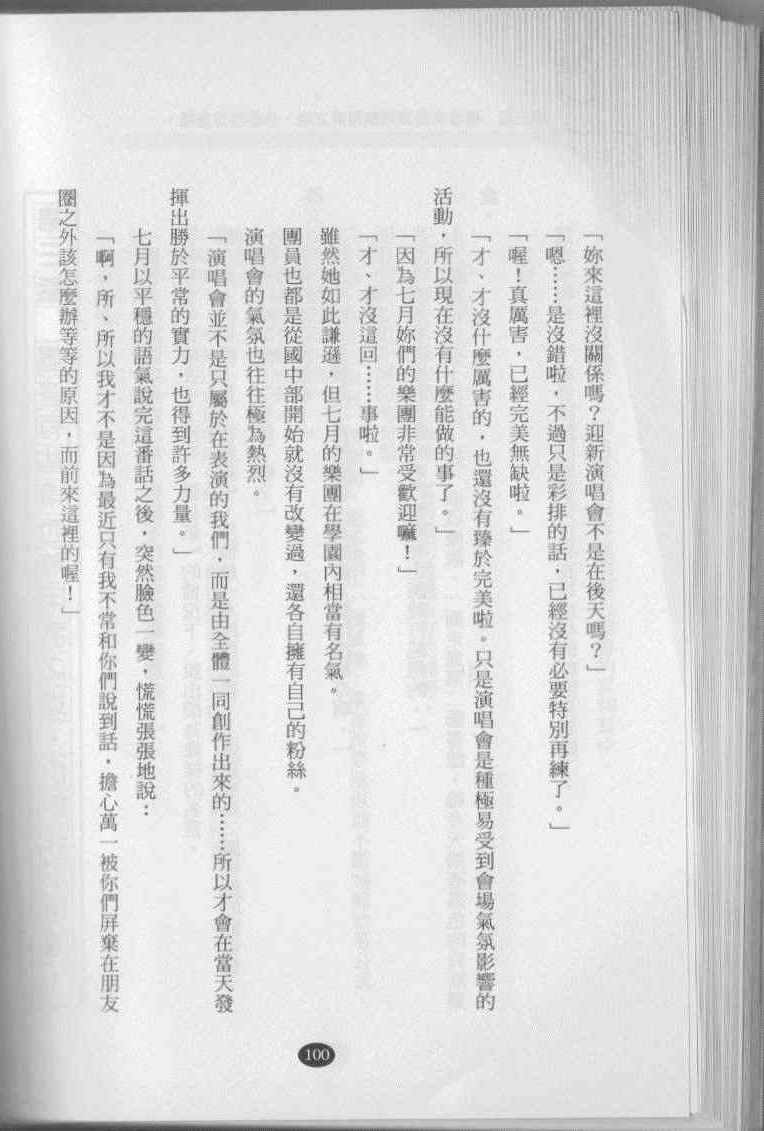 「妳來這裡沒關係嗎？迎新演唱會不是在後天嗎？」
「嗯……是沒錯啦，不過只是彩排的話，已經沒有必要特別再練了。」
「喔！真厲害，已經完美無缺啦。」
「才、才沒什麼厲害的，也還沒有臻於完美啦。只是演唱會是種極易受到會場氣氛影響的
活動，所以現在沒有什麼能做的事了。」
「因為七月妳們的樂團非常受歡迎嘛！」
「才、才沒這回……事啦。」
雖然她如此謙遜，但七月的樂團在學園內相當有名氣。
團員也都是從國中部開始就沒有改變過，還各自擁有自己的粉絲。
演唱會的氣氛也往往極為熱烈。
「演唱會並不是只屬於在表演的我們，而是由全體一同創作出來的……所以才會在當天發
揮出勝於平常的實力，也得到許多力量。」
七月以平穩的語氣說完這番話之後，突然臉色一變，慌慌張張地說：
「啊，所、所以我才不是因為最近只有我不常和你們說到話，擔心萬一被你們屏棄在朋友
圈之外該怎麼辦等等的原因，而前來這裡的喔！」
100